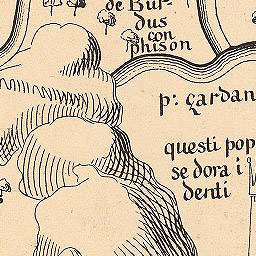 de Bur-
dus
con
phison
p: çardan
questi pop
se dora i
denti